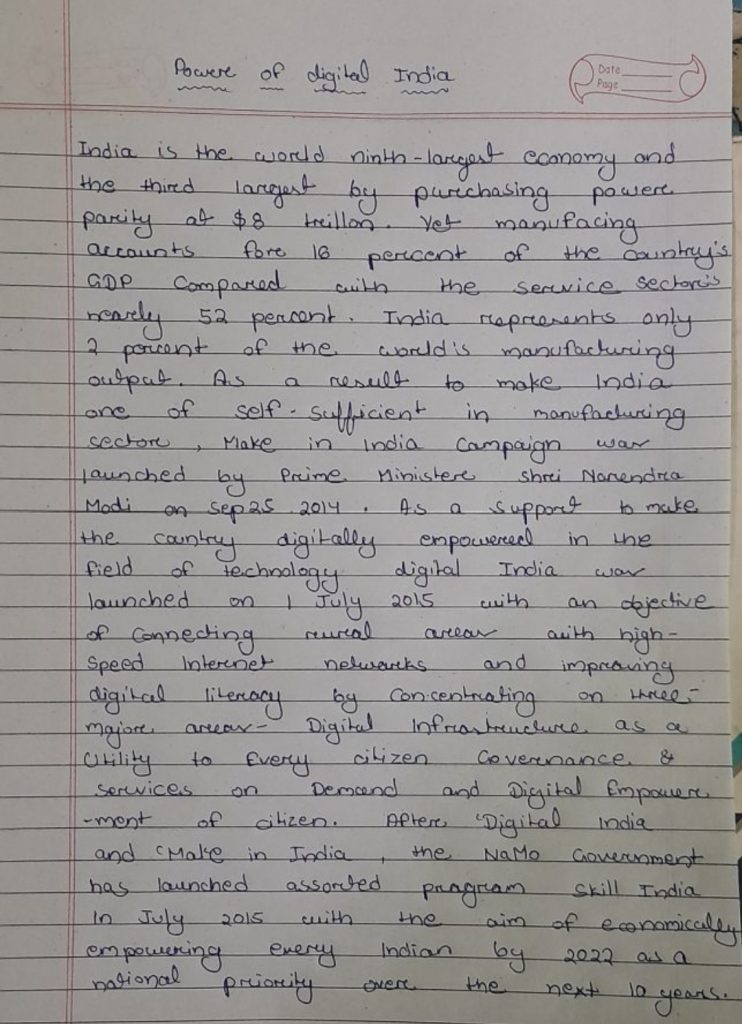 Power of digital India
Date
Page
India is the world ninth-largest economy and
the third largest by purchasing power
parity at $8 trillon. Yet manufacing
accounts for 16 percent of the country's
GDP compared with the service sector's
nearly 52 percent. India represents only
2 percent of the world's manufacturing
output. As a result to make India
one of self-sufficient in manufacturing
sector, Make in India Campaign was
launched by Prime Minister Shri Narendra
Modi on Sep 25 2014. As a support to make
the country digitally empowered in the
field of technology digital India was
launched on 1 July 2015 with an objective
of connecting rural areas with high-
speed Internet networks and improving
digital literacy by concentrating on three-
major areas- Digital Infrastructure as a
Utility to Every citizen Governance &
services on Demand and Digital Empower
-ment of citizen. After 'Digital India
and 'Make in India, the NaMo Government
has launched assorted program Skill India
In July 2015 with the aim of economically
empowering every Indian by 2022 as a
national priority over the next 10 years.